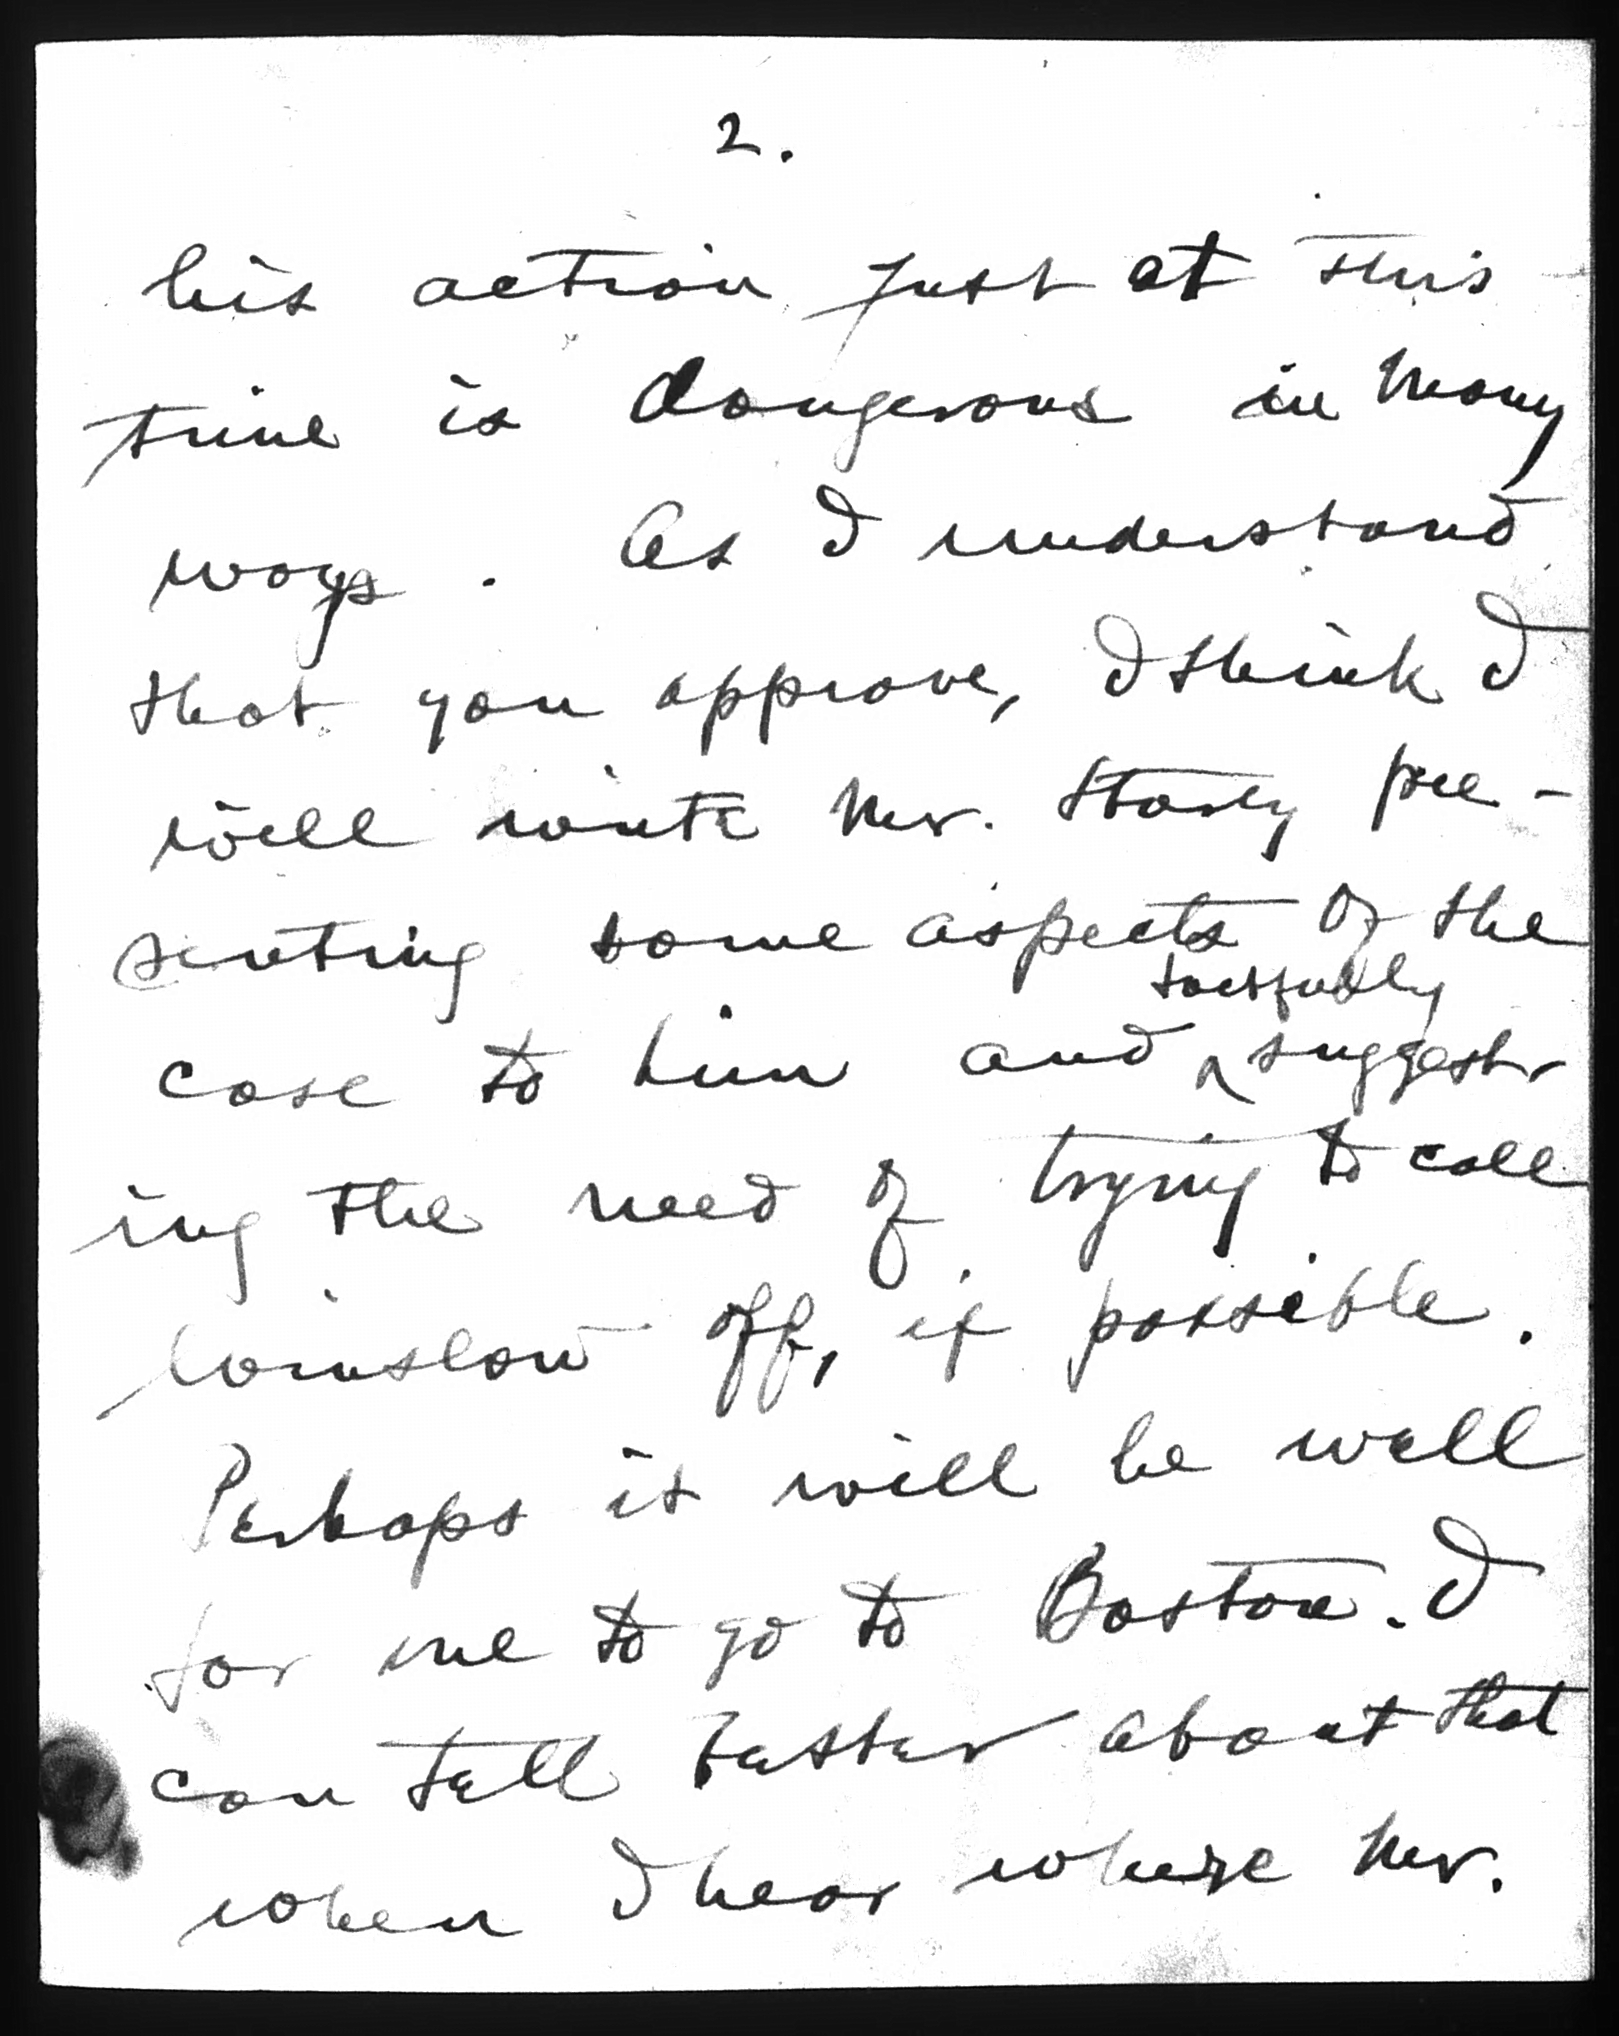 2.
his action just at this
time is dangerous in many
ways. As I understand
that you approve, I think I
will write Mr. Storey pre-
senting some aspects of the
tactfully
case to him and ^ suggest-
ing the need of trying to call
Winslow off, if possible.
Perhaps it will be well
for me to go to Boston. I
can tell better about that
when I hear where Mr.